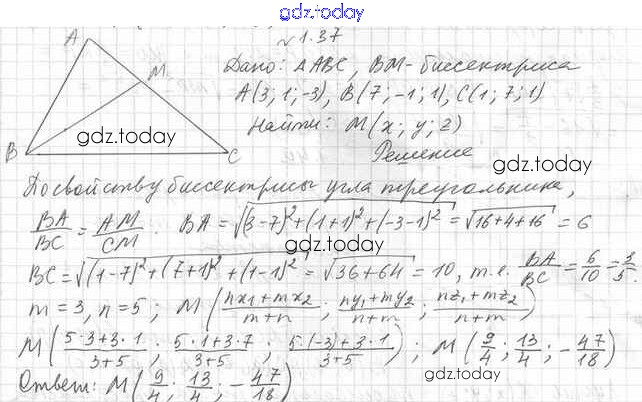 gdz.today
№ 1.37
A
M
B
C
gdz.today
Дано: △ABC, BM - биссектриса
A(3; 1; -3), B(7; -1; 1), C(1; 7; 1)
Найти: M(x; y; z)
Решение
gdz.today
По свойству биссектрисы угла треугольника,
BA/BC = AM/CM. BA = √((3-7)² + (1+1)² + (-3-1)²) = √(16+4+16) = 6
gdz.today
BC = √((1-7)² + (7+1)² + (1-1)²) = √(36+64) = 10, т.е. BA/BC = 6/10 = 3/5.
m = 3, n = 5; M((nx₁+mx₂)/(m+n); (ny₁+my₂)/(n+m); (nz₁+mz₂)/(n+m))
M((5·3+3·1)/(3+5); (5·1+3·7)/(3+5); (5·(-3)+3·1)/(3+5)); M(9/4; 13/4; -47/18)
gdz.today
Ответ: M(9/4; 13/4; -47/18)